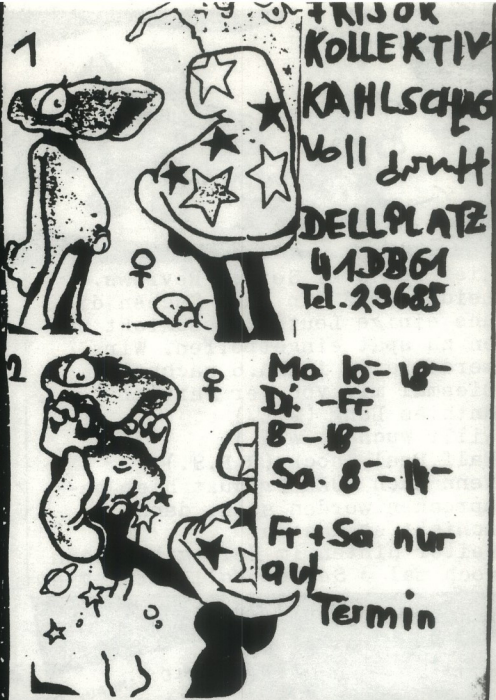 1
FRISÖR
KOLLEKTIV
KAHLSCHLAG
Voll
DELLPLATZ
41DBG1
Tel. 23685
2
Mo 10 - 18
Di. - Fr
8 - 18
Sa. 8 - 14
Fr + Sa nur
auf
Termin